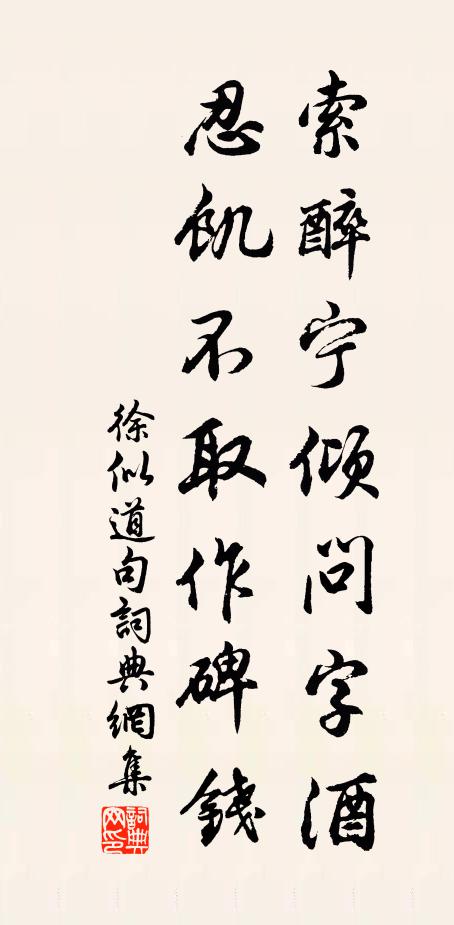 索醉宁倾问字酒
忍飢不取作碑錢
徐似道句詞典網集
詞典網印